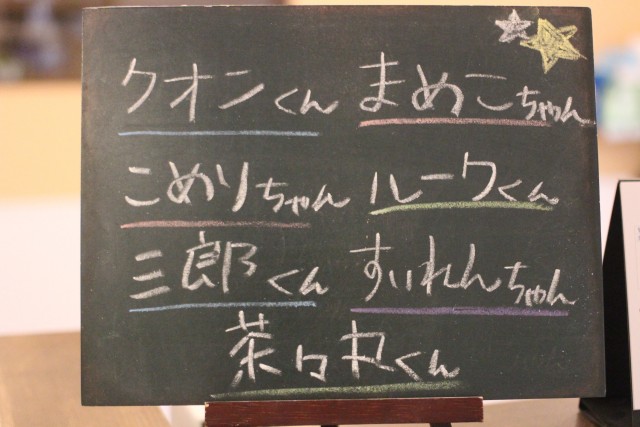 クオンくん まめこちゃん
こめりちゃん ルークくん
三郎くん すいれんちゃん
茶々丸くん